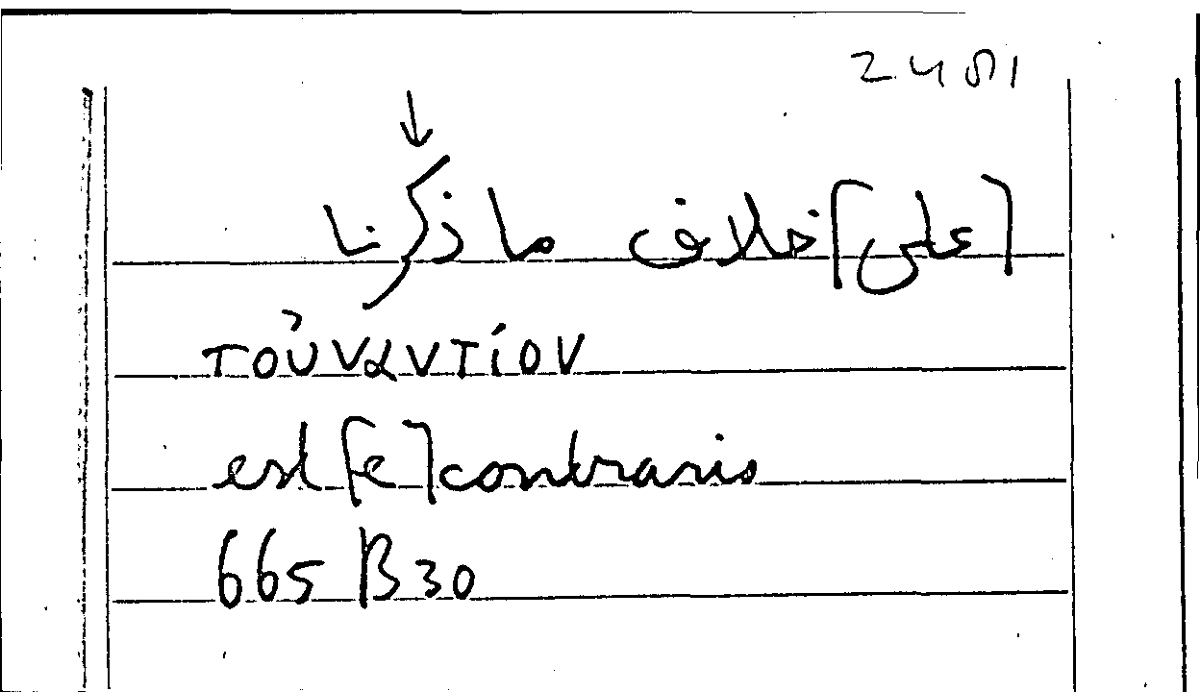 [على] خلاف ما ذكرنا
τοὐναντίον
est [e] contrario
665 β 30